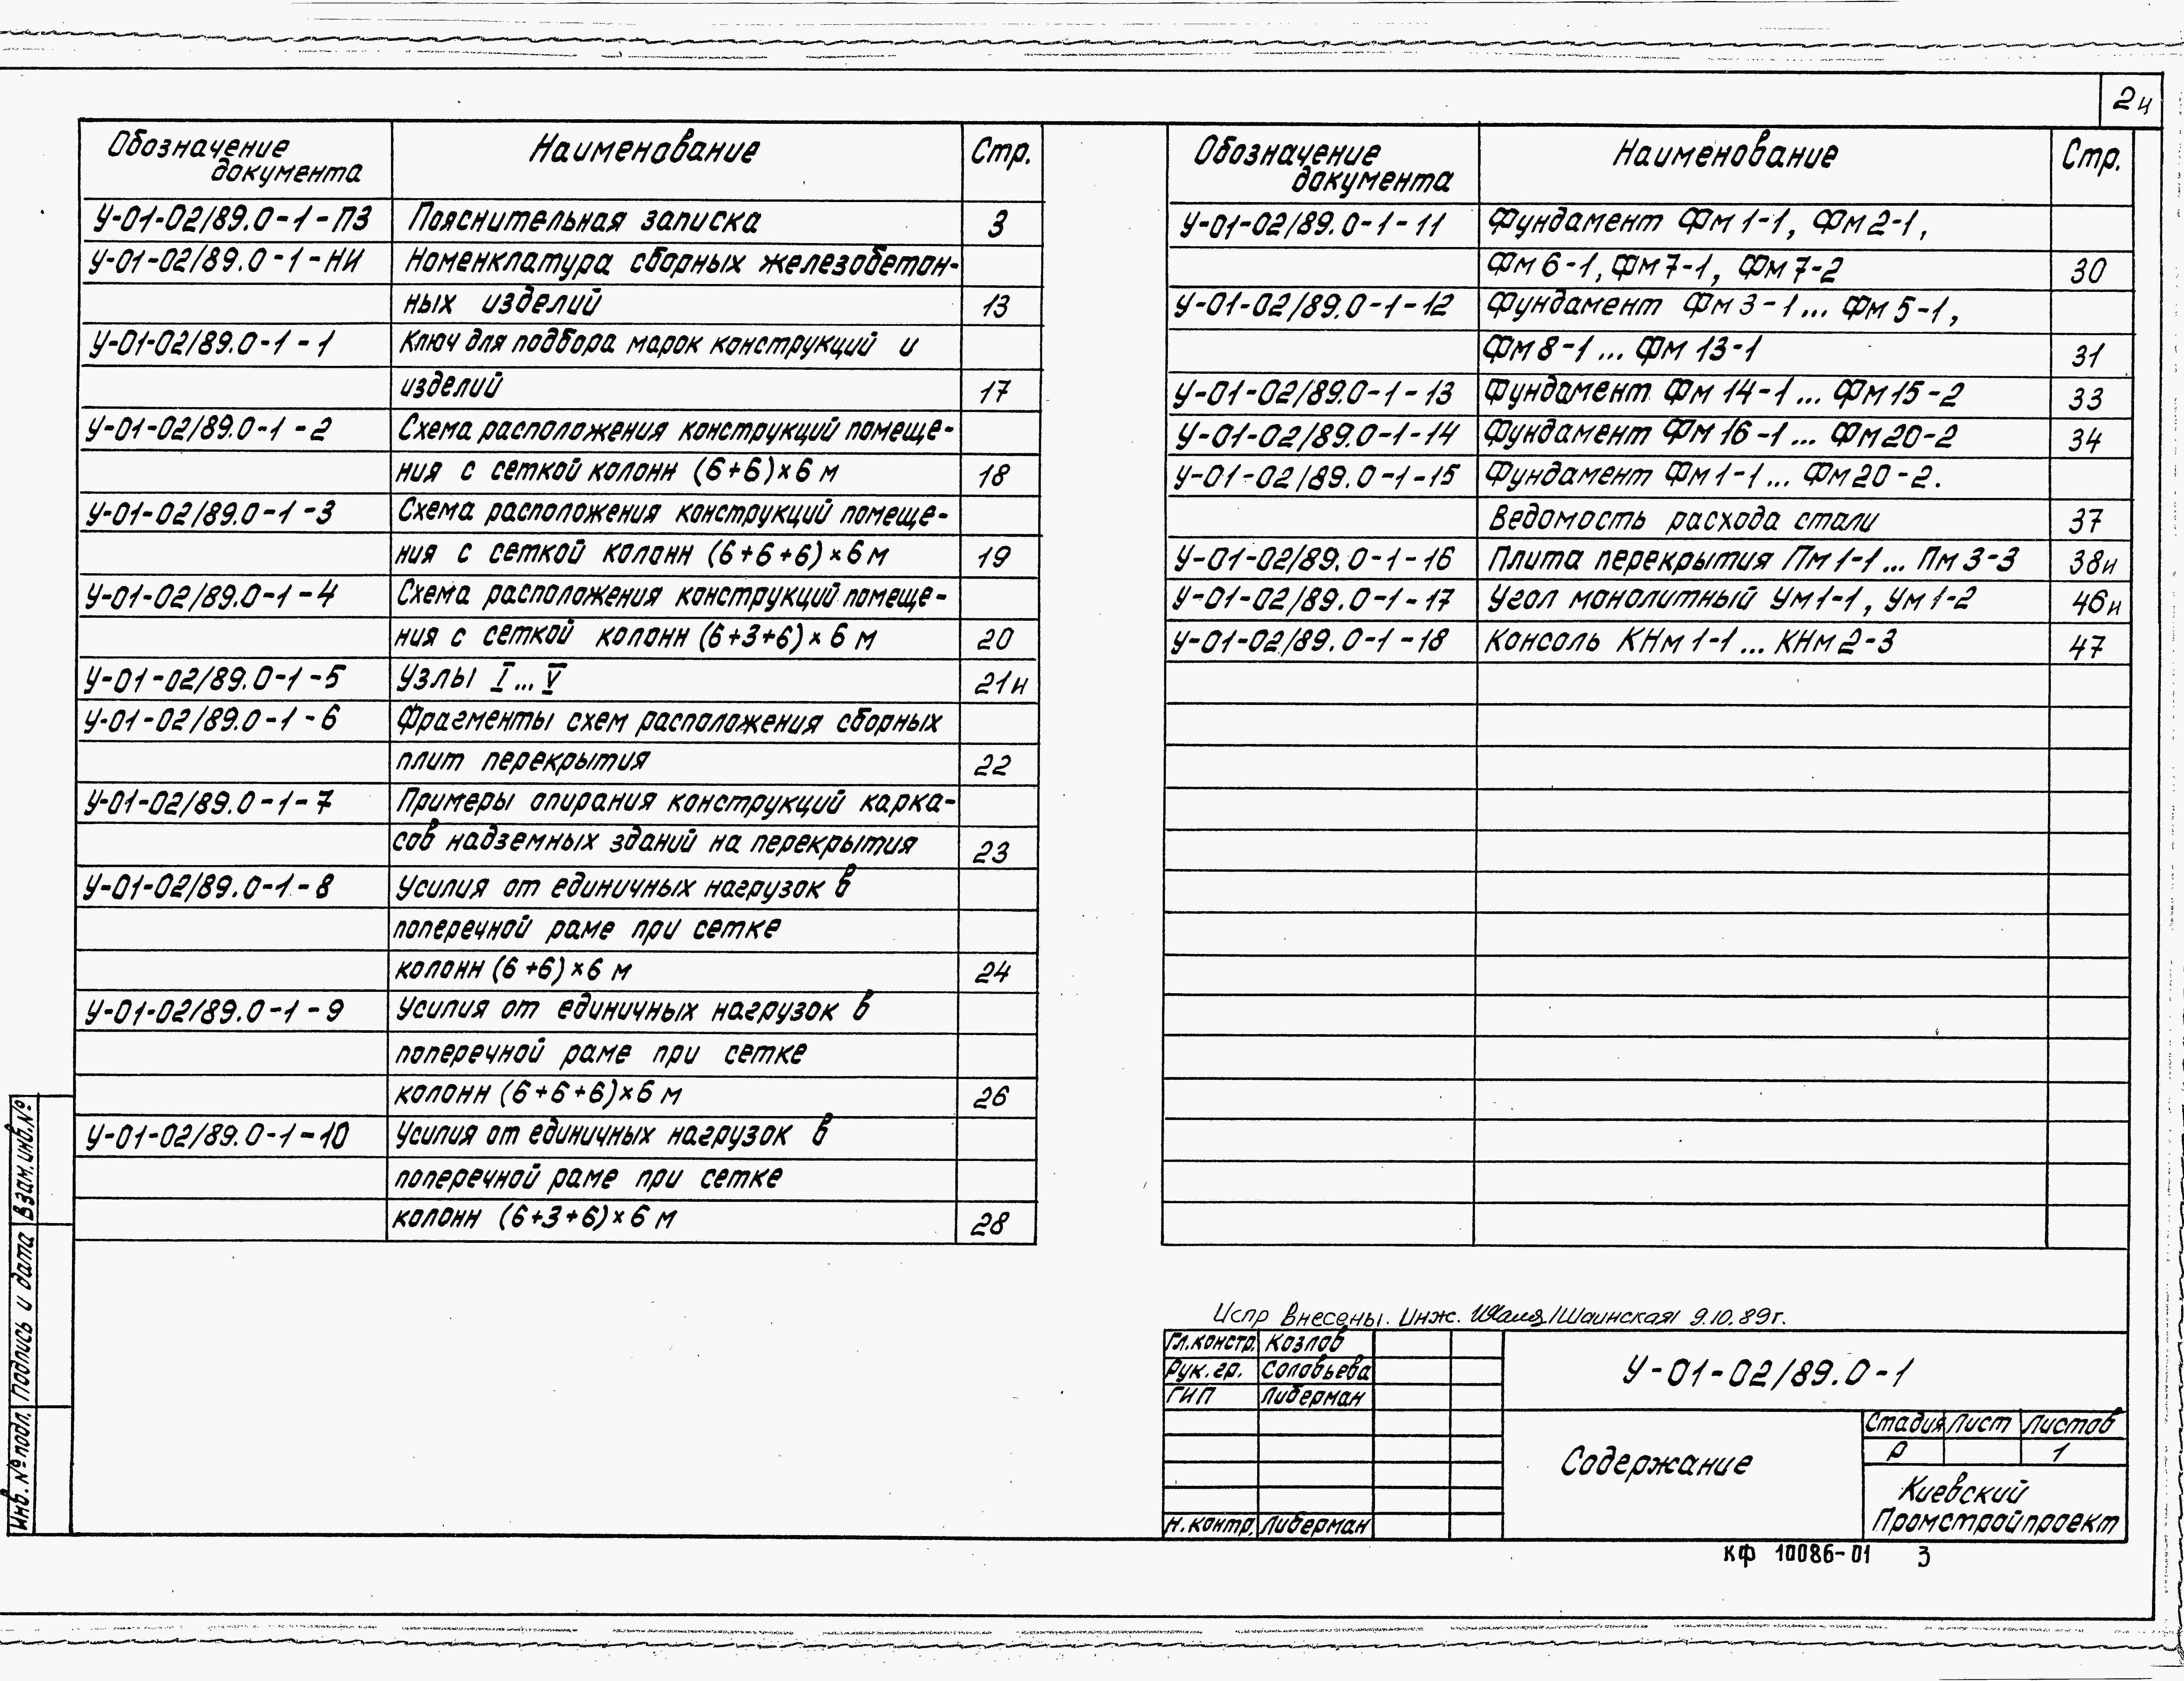 2и
Обозначение документа Наименование Стр.
У-01-02/89.0-1-ПЗ Пояснительная записка 3
У-01-02/89.0-1-НИ Номенклатура сборных железобетон-
ных изделий 13
У-01-02/89.0-1-1 Ключ для подбора марок конструкций и
изделий 17
У-01-02/89.0-1-2 Схема расположения конструкций помеще-
ния с сеткой колонн (6+6)×6 м 18
У-01-02/89.0-1-3 Схема расположения конструкций помеще-
ния с сеткой колонн (6+6+6)×6 м 19
У-01-02/89.0-1-4 Схема расположения конструкций помеще-
ния с сеткой колонн (6+3+6)×6 м 20
У-01-02/89.0-1-5 Узлы I...V 21и
У-01-02/89.0-1-6 Фрагменты схем расположения сборных
плит перекрытия 22
У-01-02/89.0-1-7 Примеры опирания конструкций карка-
сов надземных зданий на перекрытия 23
У-01-02/89.0-1-8 Усилия от единичных нагрузок в
поперечной раме при сетке
колонн (6+6)×6 м 24
У-01-02/89.0-1-9 Усилия от единичных нагрузок в
поперечной раме при сетке
колонн (6+6+6)×6 м 26
У-01-02/89.0-1-10 Усилия от единичных нагрузок в
поперечной раме при сетке
колонн (6+3+6)×6 м 28
Обозначение документа Наименование Стр.
У-01-02/89.0-1-11 Фундамент Фм 1-1, Фм 2-1,
Фм 6-1, Фм 7-1, Фм 7-2 30
У-01-02/89.0-1-12 Фундамент Фм 3-1... Фм 5-1,
Фм 8-1 ... Фм 13-1 31
У-01-02/89.0-1-13 Фундамент Фм 14-1 ... Фм 15-2 33
У-01-02/89.0-1-14 Фундамент Фм 16-1 ... Фм 20-2 34
У-01-02/89.0-1-15 Фундамент Фм 1-1 ... Фм 20-2.
Ведомость расхода стали 37
У-01-02/89.0-1-16 Плита перекрытия Пм 1-1 ... Пм 3-3 38и
У-01-02/89.0-1-17 Угол монолитный Ум 1-1, Ум 1-2 46и
У-01-02/89.0-1-18 Консоль КНм 1-1 ... КНм 2-3 47
Испр внесены. Инж. /Шаинская/ 9.10.89г.
Гл.констр. Козлов
Рук.гр. Соловьева
ГИП Либерман
Н.контр. Либерман
У-01-02/89.0-1
Содержание
Стадия Лист Листов
Р 1
Киевский
Промстройпроект
КФ 10086-01 3
Инв. № подл. Подпись и дата Взам. инв. №